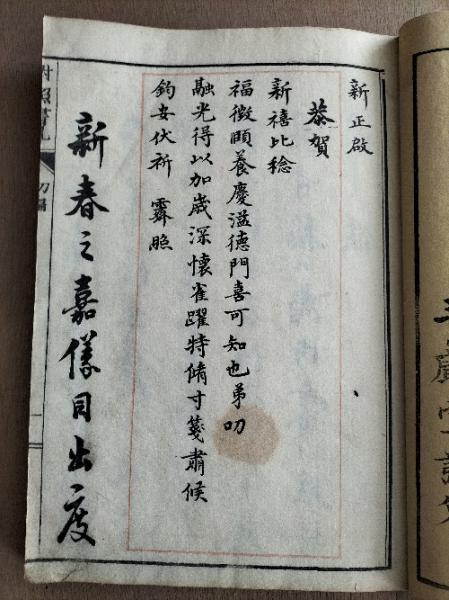 新正啟
恭賀
新禧比稔
福徵頤養慶溢德門喜可知也弟叨
融光得以加歲深懷雀躍特脩寸箋肅候
鈞安伏祈 霽照
新春之嘉儀目出度
對照書
初編